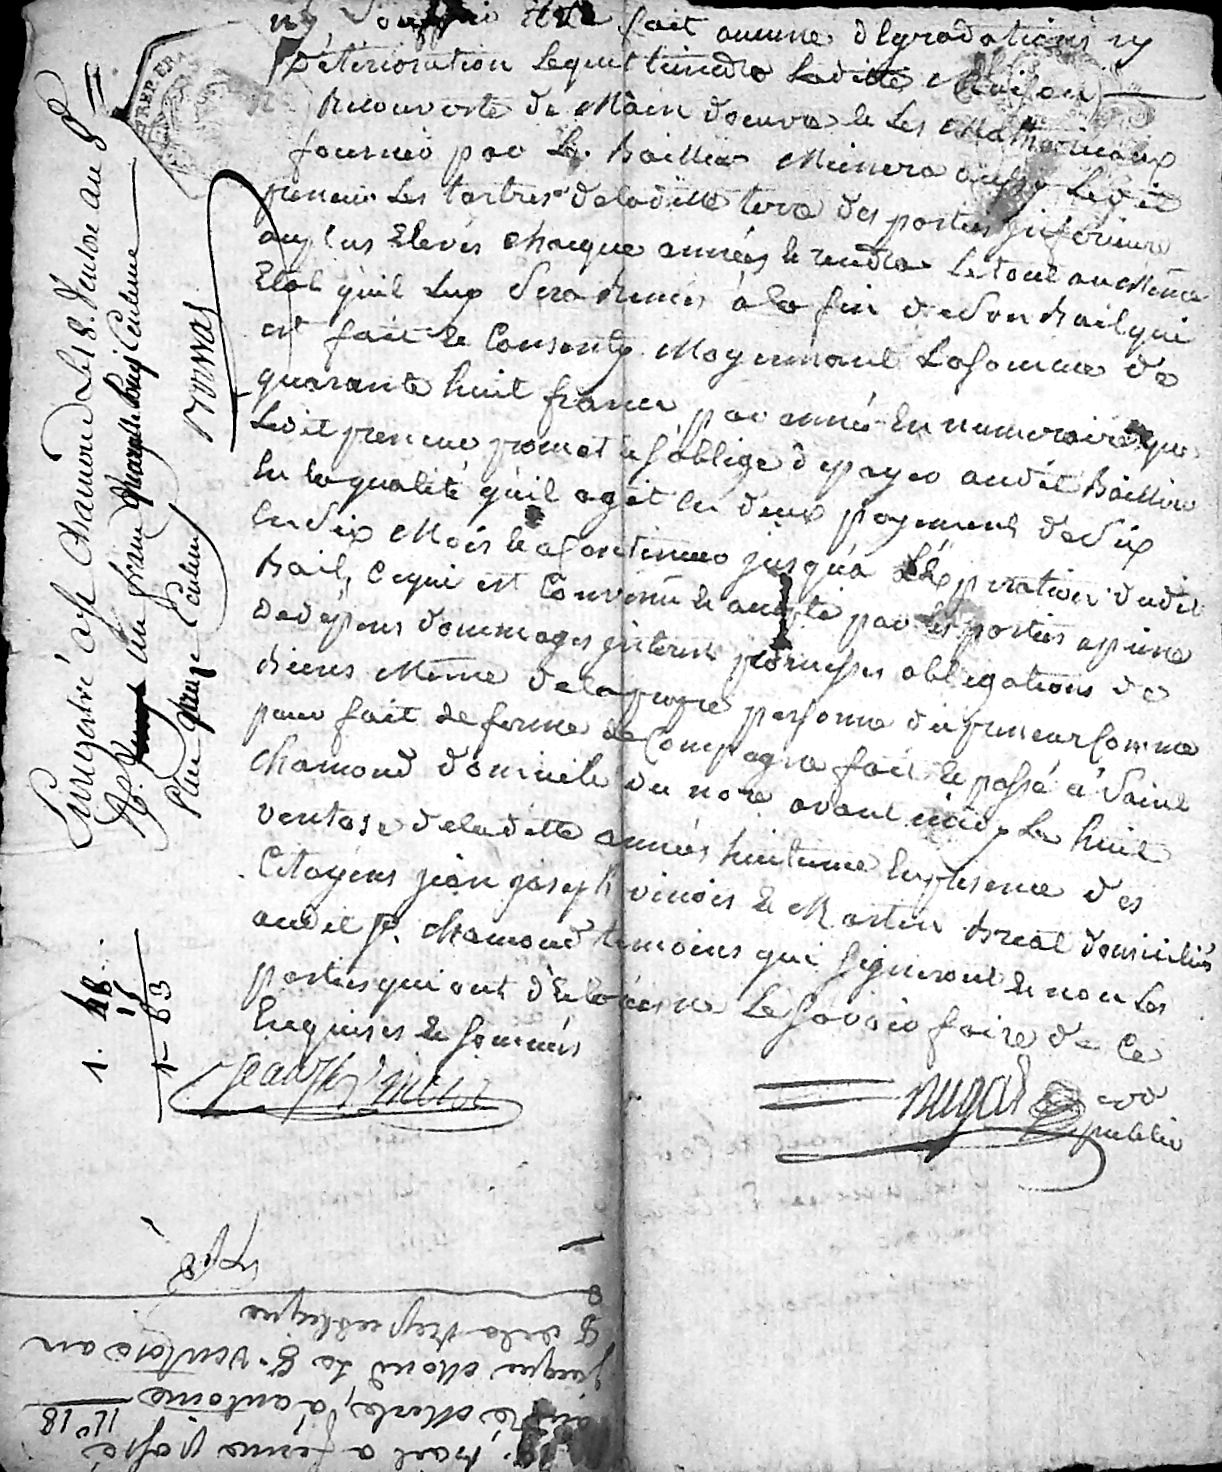 ny Souffrir Etre fait aucune dégradations ny
Déterioration Lequel tiendra Laditte Maison
Recouverte de Main doeuvre le Les Mattereriaux
fournis par Le Bailleur Menera aussy Ledit
preneur Les tertres deladitte terre des parties jnferieure
auplus Elevés chaque années le rendra Letout au Même
Etat quil Luy Sera Remis à la fin de Son Bail qui
est fait le Consenty Moyennant La Somme de
quarante huit francs par année En numeraire que
Ledit preneur promet le S'oblige de payer audit Bailleur
En la qualité quil agit En deux payements de Six
En Six Mois le a Continuer jusqua L'Expiration dudit
Bail, Cequi est Convenu le accepté par Les parties apeine
de dépens dommages jnterets promesses obligations de
Biens Même de la propre personne du preneur Comme
pour fait de ferme de Compagne fait le passé a Saint
chamond domicile du nore avant midy Le huit
ventose deladitte années huitieme En presence des
Citoyens jean joseph vinois le Martin Breat domiciliés
audit St. chamond temoins qui Signeront le non Les
parties qui ont déclarés ne Le Savoir faire de Ce
Enquises le Sommés
Jean Jh Vinois
Dugas
public
Enregistré à St Chamond Le 18. Ventose an 8
un franc
1. 48.
15
1 - 63
Bail a ferme passé
n° 18
à antoine
jacque Le 8. ventose an
8 de la Republique